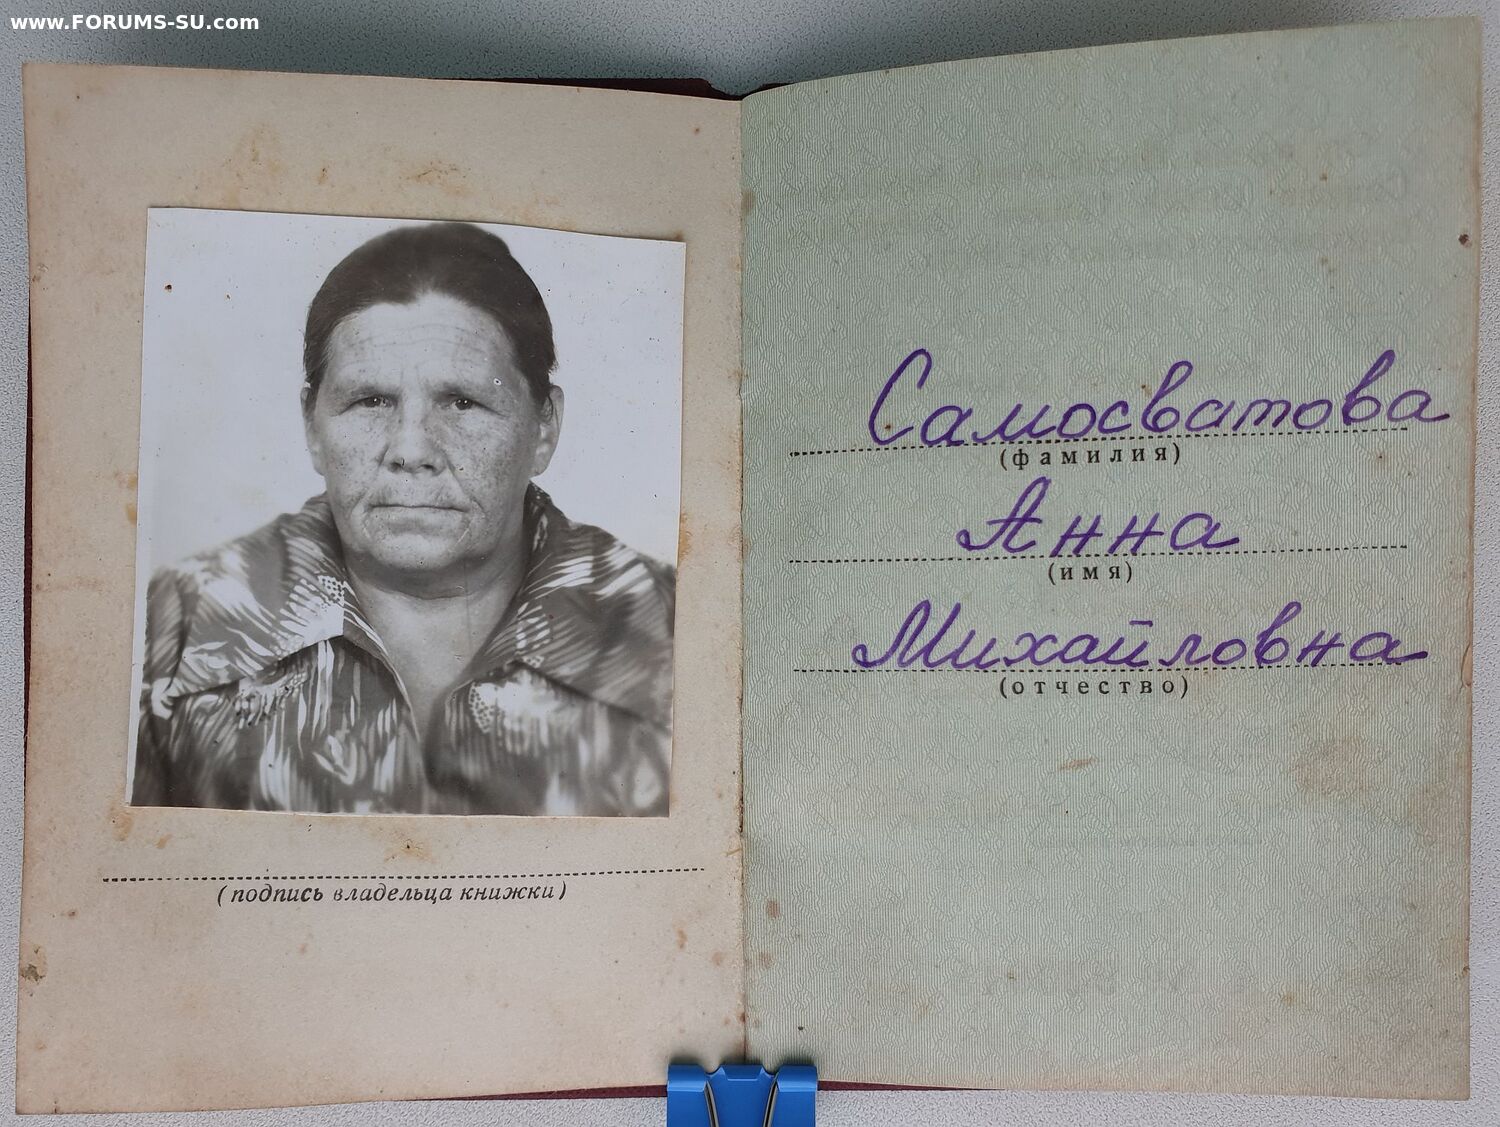 www.FORUMS-SU.com
(подпись владельца книжки)
Самосватова
(фамилия)
Анна
(имя)
Михайловна
(отчество)